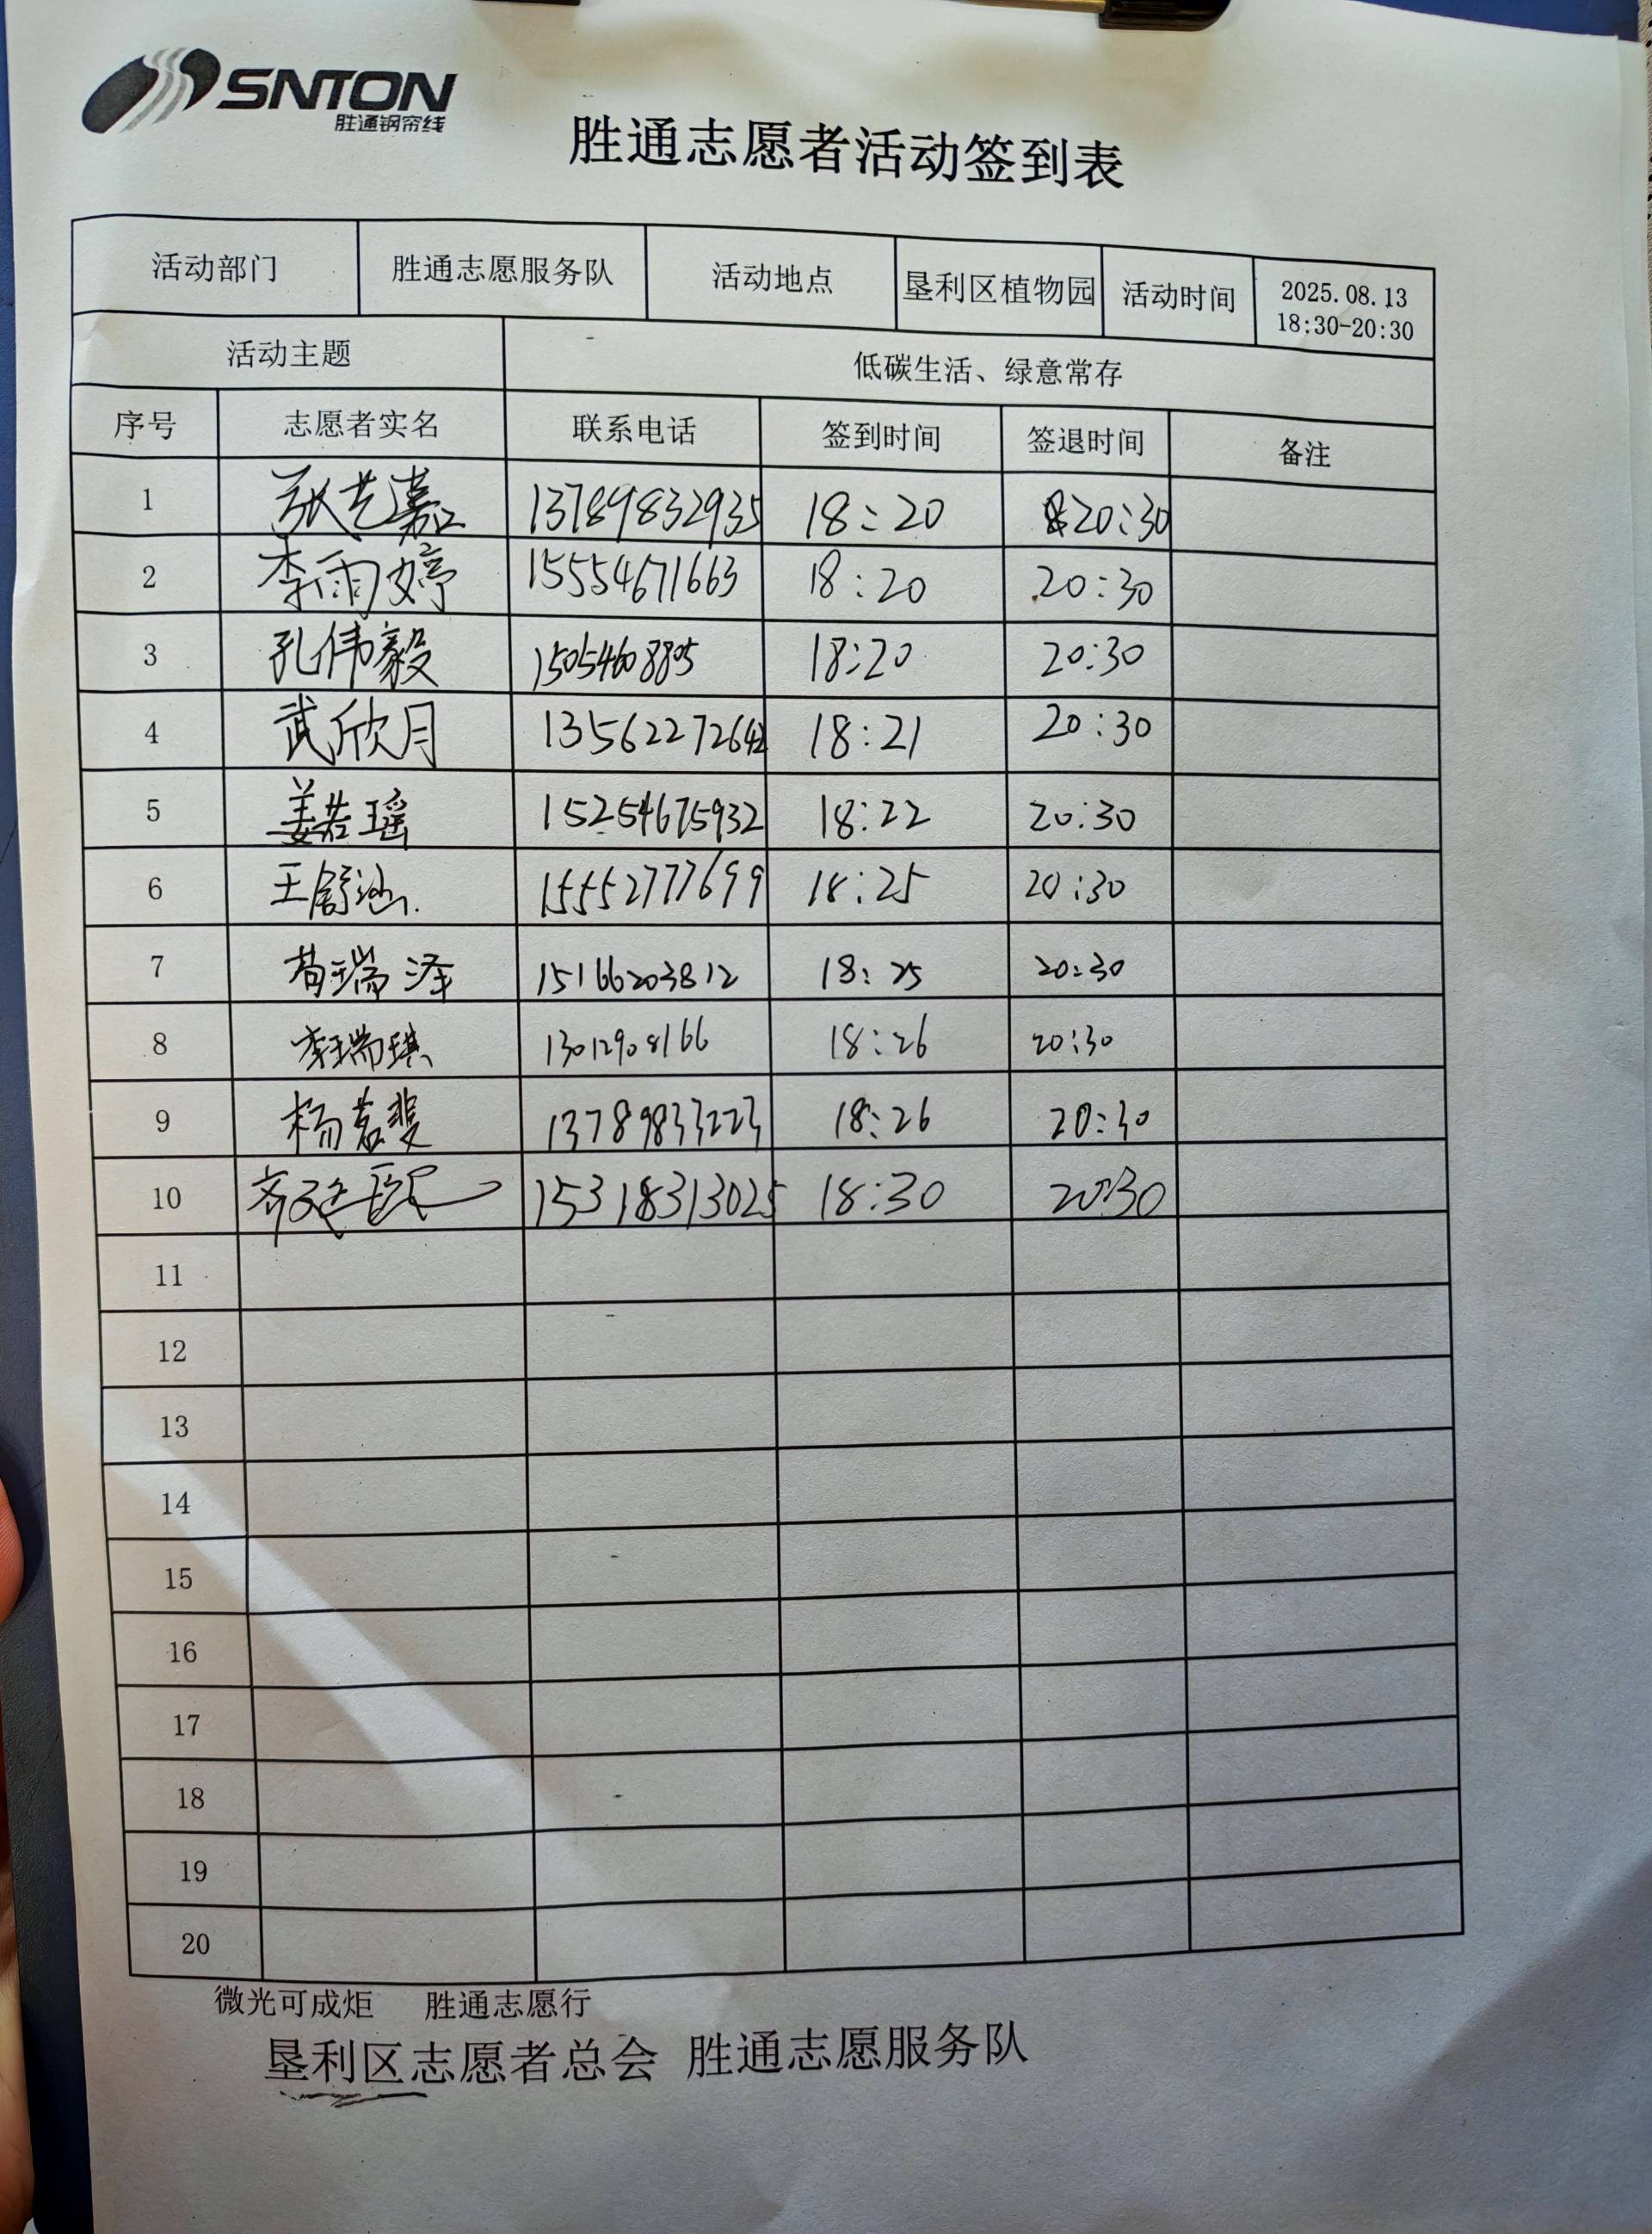 SNTON
胜通钢帘线
胜通志愿者活动签到表
活动部门 胜通志愿服务队 活动地点 垦利区植物园 活动时间 2025.08.13
18:30-20:30
活动主题 低碳生活、绿意常存
序号 志愿者实名 联系电话 签到时间 签退时间 备注
1 张艺嘉 13789832935 18:20 20:30
2 李雨婷 15554671663 18:20 20:30
3 孔伟毅 15054608805 18:20 20:30
4 武欣月 13562272642 18:21 20:30
5 姜若瑶 15254675932 18:22 20:30
6 王舒涵 15552777699 18:25 20:30
7 苟瑞泽 15166203812 18:25 20:30
8 李瑞琪 13012908166 18:26 20:30
9 杨茗斐 13789833223 18:26 20:30
10 15318313025 18:30 20:30
11
12
13
14
15
16
17
18
19
20
微光可成炬 胜通志愿行
垦利区志愿者总会 胜通志愿服务队